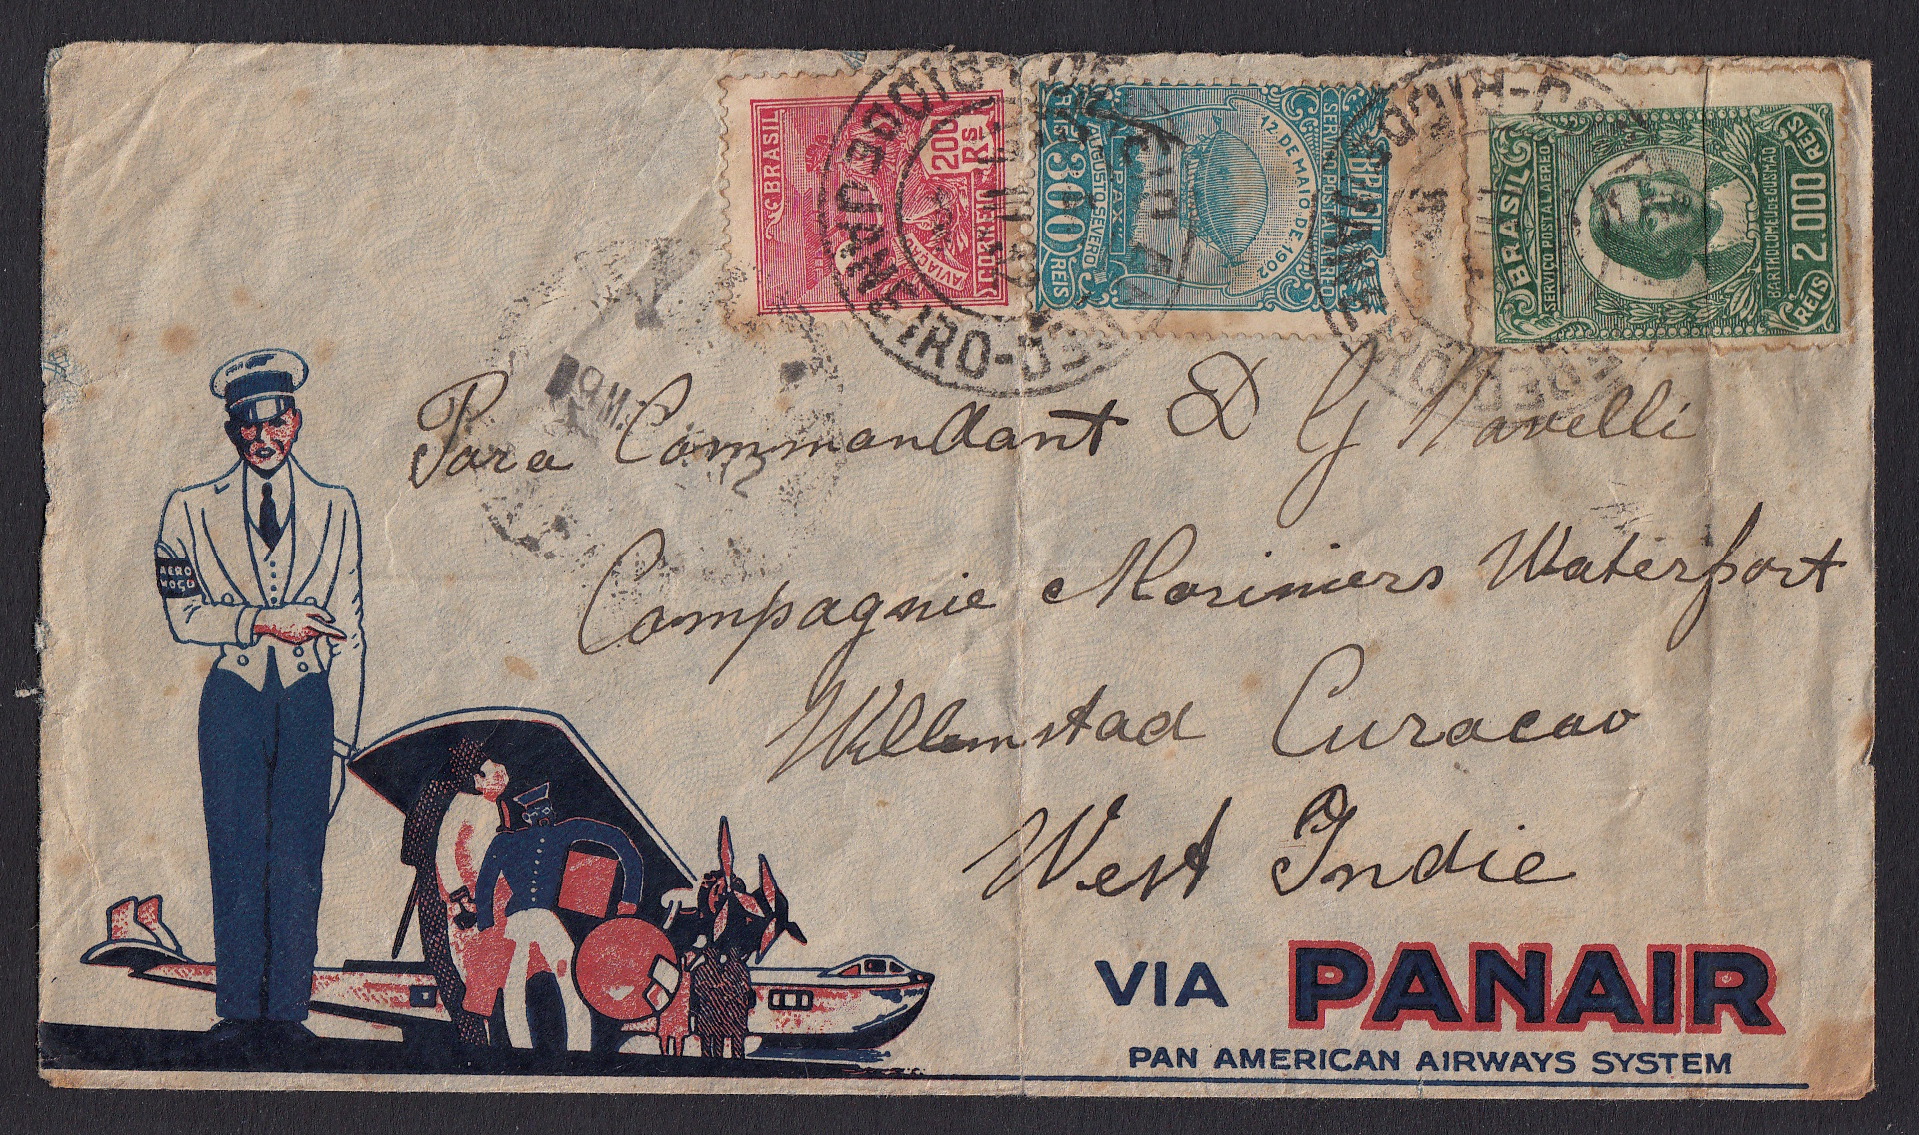 BRASIL
200 Rs
CORREIO
AVIAÇÃO
BRASIL
SERVIÇO POSTAL AEREO
12 DE MAIO DE 1902
PAX
AUGUSTO SEVERO
REIS 300 REIS
BRASIL
SERVIÇO POSTAL AEREO
BARTHOLOMEU DE GUSMÃO
REIS 2.000 REIS
RIO DE JANEIRO-D.FED
Para Commandant D G Navelli
Compagnie Moriniers Waterfort
Willemstad Curacao
West Indie
AERO
MOÇO
VIA PANAIR
PAN AMERICAN AIRWAYS SYSTEM